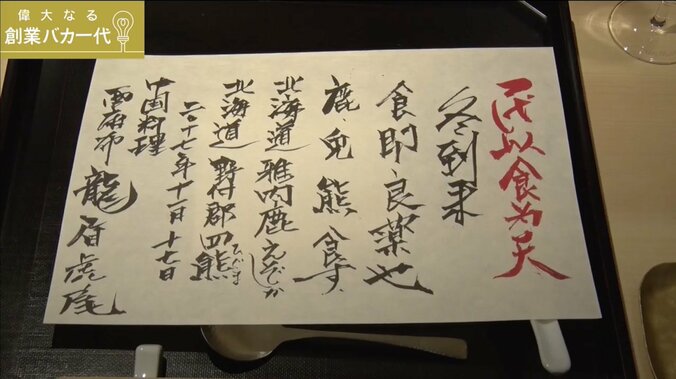 偉大なる
創業バカ一代
民以食為天
冬到来
食即良薬也
鹿、兎、熊食す
北海道稚内鹿えぞしか
北海道野付郡四熊ひぐま
二〇十七年十一月十七日
中国料理
西麻布 龍眉虎尾